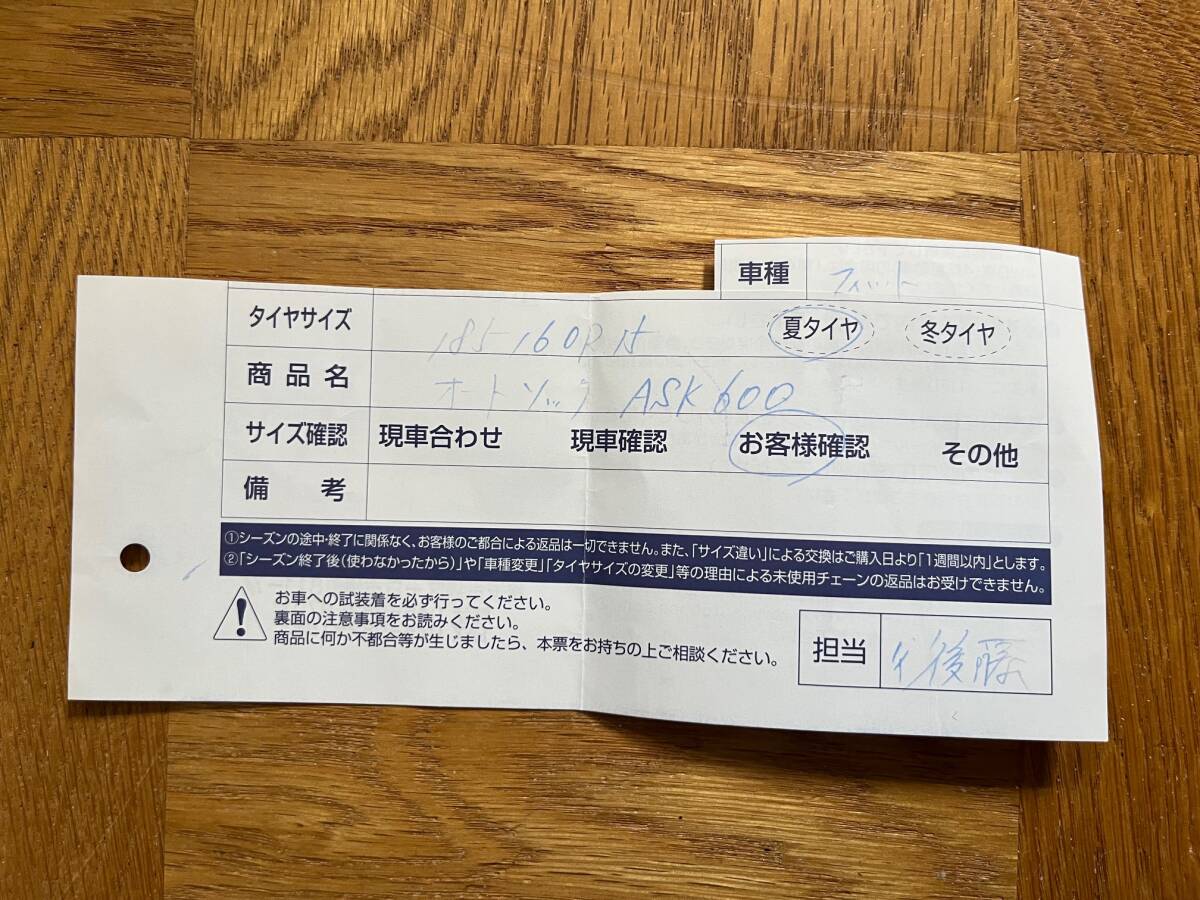 車種 フィット
タイヤサイズ 185/60R15 夏タイヤ 冬タイヤ
商品名 オートソック ASK600
サイズ確認 現車合わせ 現車確認 お客様確認 その他
備考
①シーズンの途中・終了に関係なく、お客様のご都合による返品は一切できません。また、「サイズ違い」による交換はご購入日より「1週間以内」とします。
②「シーズン終了後(使わなかったから)」や「車種変更」「タイヤサイズの変更」等の理由による未使用チェーンの返品はお受けできません。
お車への試装着を必ず行ってください。
裏面の注意事項をお読みください。
商品に何か不都合等が生じましたら、本票をお持ちの上ご相談ください。
担当 後藤